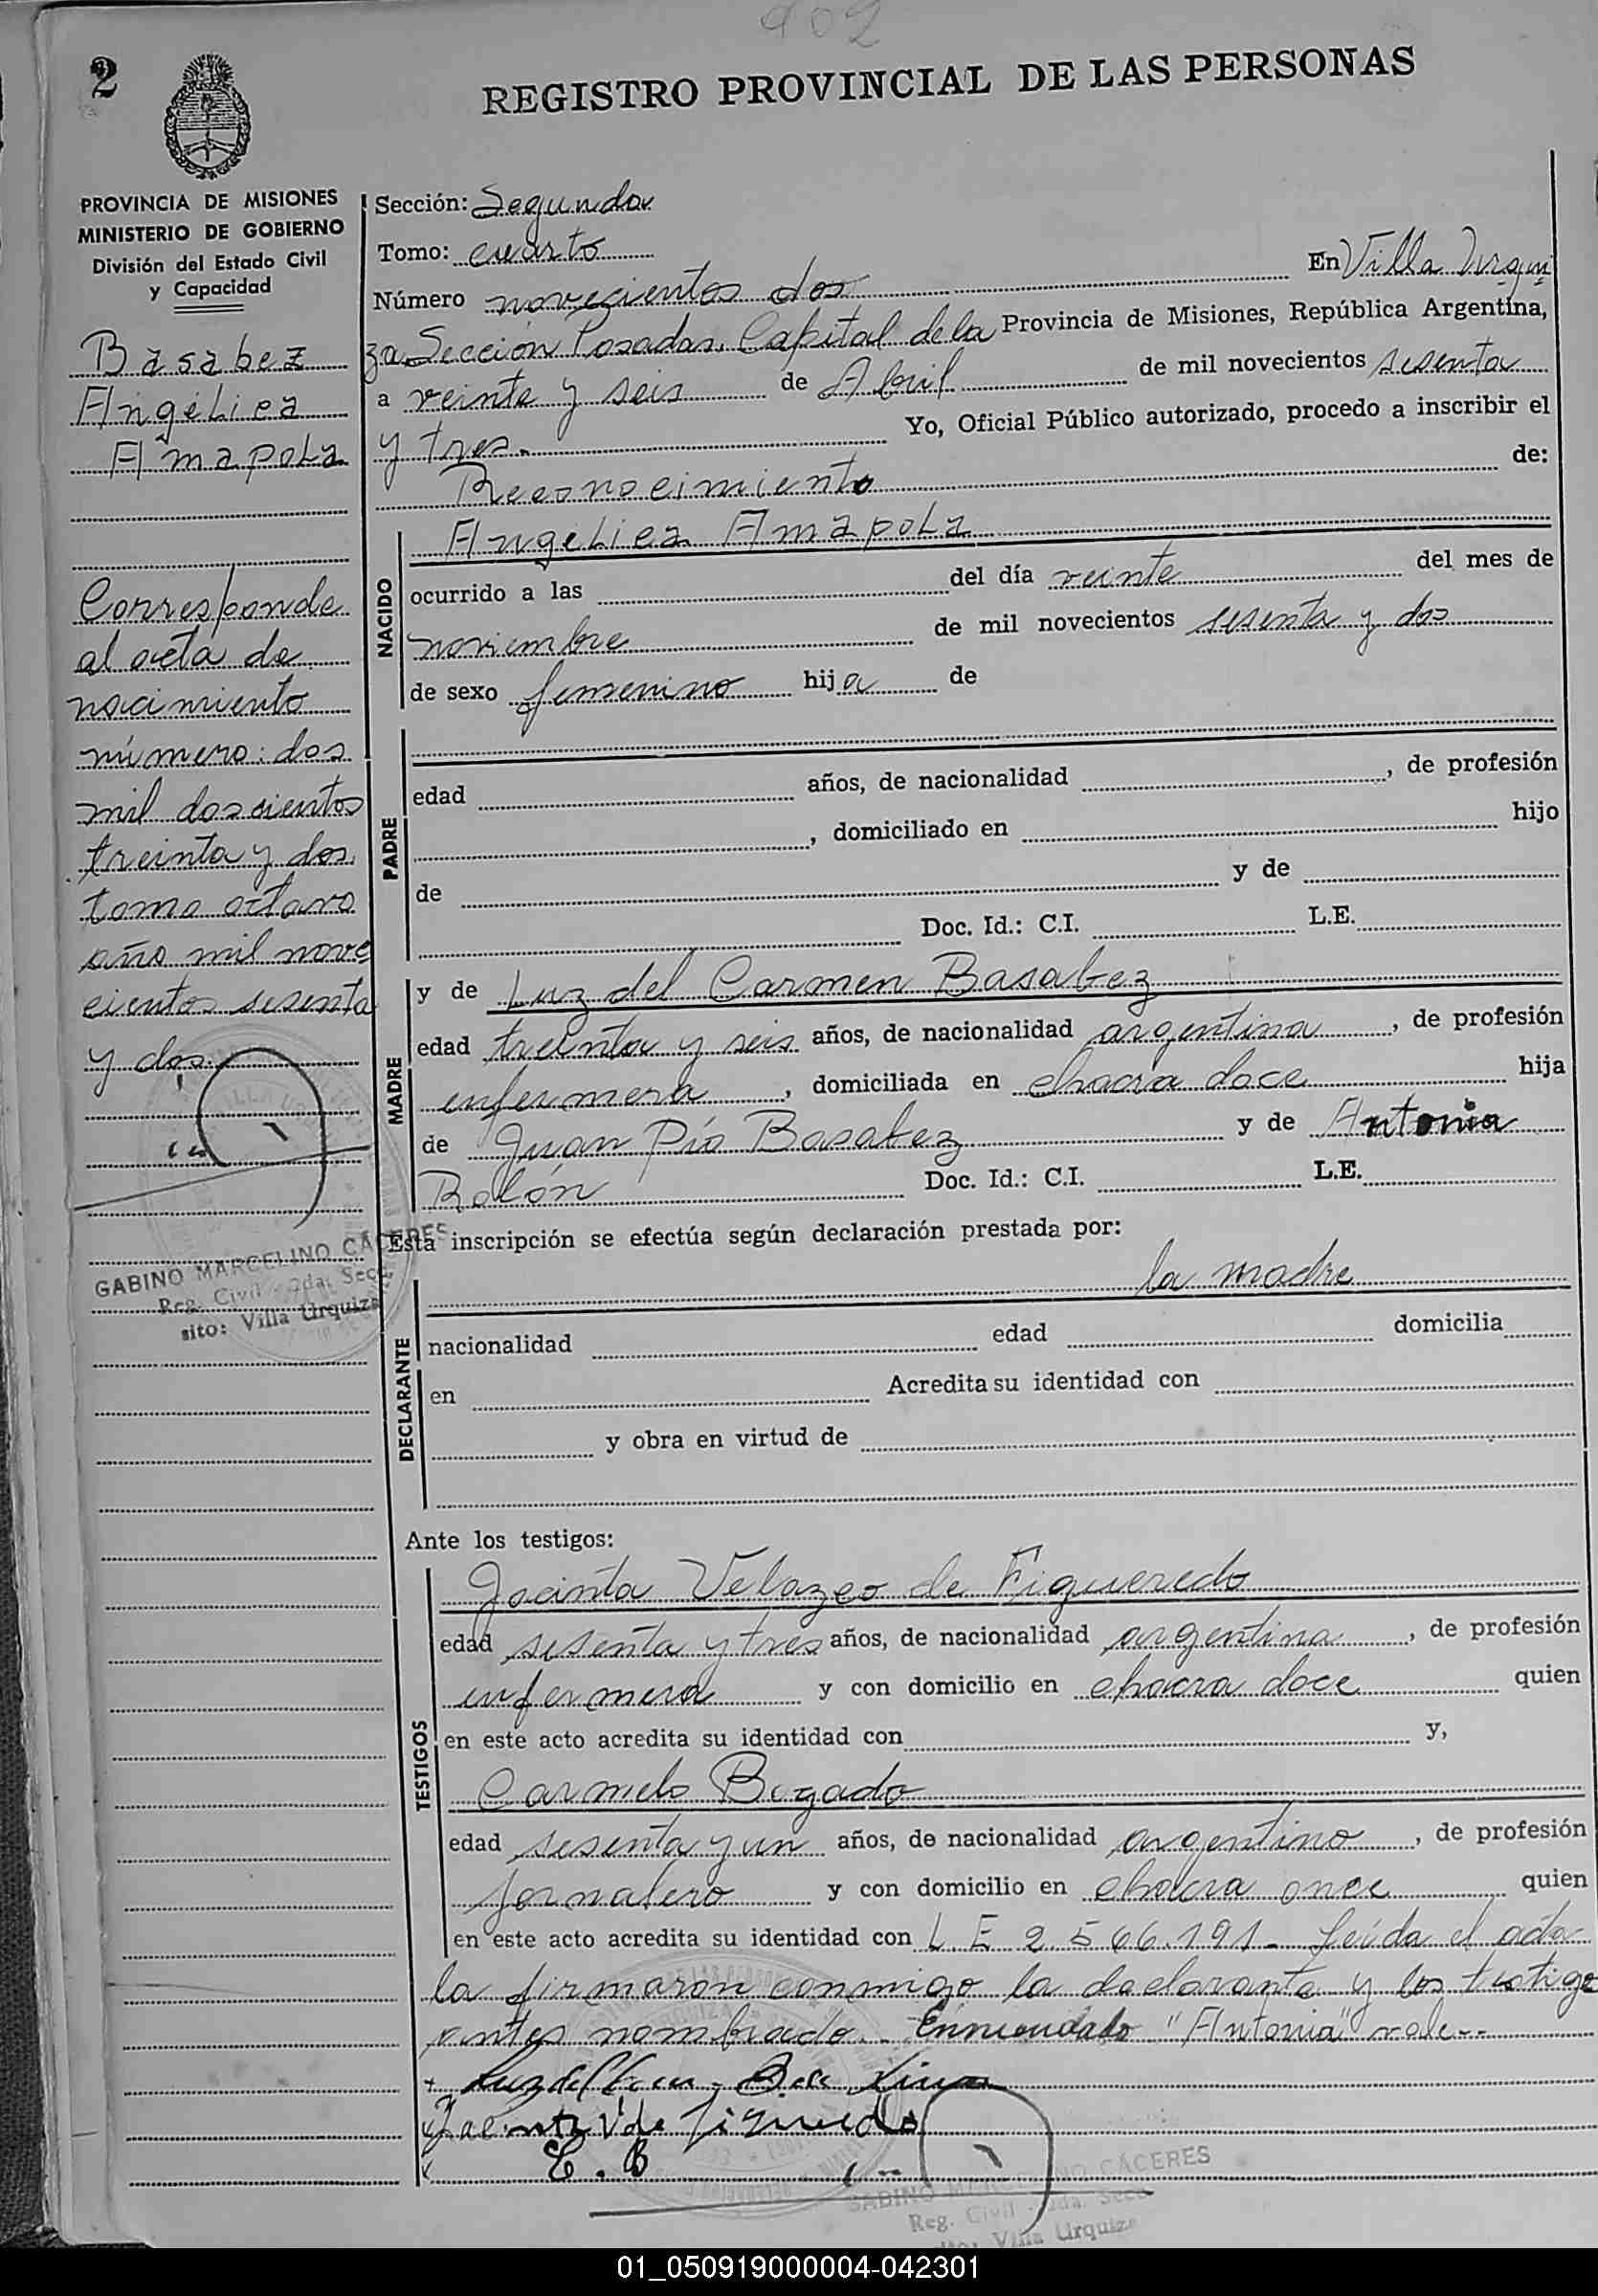 902
2
REGISTRO PROVINCIAL DE LAS PERSONAS
PROVINCIA DE MISIONES
MINISTERIO DE GOBIERNO
División del Estado Civil
y Capacidad
Basabez
Angélica
Amapola
Corresponde
al acta de
nacimiento
número: dos
mil doscientos
treinta y dos.
tomo octavo
año mil nove
cientos sesenta
y dos.
GABINO MARCELINO CÁCERES
Reg. Civil - 2da. Secc.
sito: Villa Urquiza
Sección: Segunda
Tomo: cuarto
Número novecientos dos En Villa Urqui
za Sección Posadas, Capital de la Provincia de Misiones, República Argentina,
a veinte y seis de Abril de mil novecientos sesenta
y tres.- Yo, Oficial Público autorizado, procedo a inscribir el
Reconocimiento de:
NACIDO
Angélica Amapola
ocurrido a las del día veinte del mes de
noviembre de mil novecientos sesenta y dos
de sexo femenino hija de
PADRE
edad años, de nacionalidad , de profesión
, domiciliado en hijo
de y de
Doc. Id.: C.I. L.E.
MADRE
y de Luz del Carmen Basabez
edad treinta y seis años, de nacionalidad argentina , de profesión
enfermera , domiciliada en chacra doce hija
de Juan Pío Basabez y de Antonia
Rolón Doc. Id.: C.I. L.E.
Esta inscripción se efectúa según declaración prestada por:
DECLARANTE
la madre
nacionalidad edad domicilia
en Acredita su identidad con
y obra en virtud de
Ante los testigos:
TESTIGOS
Jacinta Velazco de Figueredo
edad sesenta y tres años, de nacionalidad argentina , de profesión
enfermera y con domicilio en chacra doce quien
en este acto acredita su identidad con y,
Carmelo Bogado
edad sesenta y un años, de nacionalidad argentino , de profesión
jornalero y con domicilio en chacra once quien
en este acto acredita su identidad con L E 2.566.191- Leída el acta
la firmaron conmigo la declarante y los testigo
antes nombrado.- Enmendado "Antonia" vale--
Luz del
Jacinta V de Figueredo
C. B
GABINO MARCELINO CÁCERES
Reg. Civil - 2da. Secc.
sito: Villa Urquiza
01_050919000004-042301